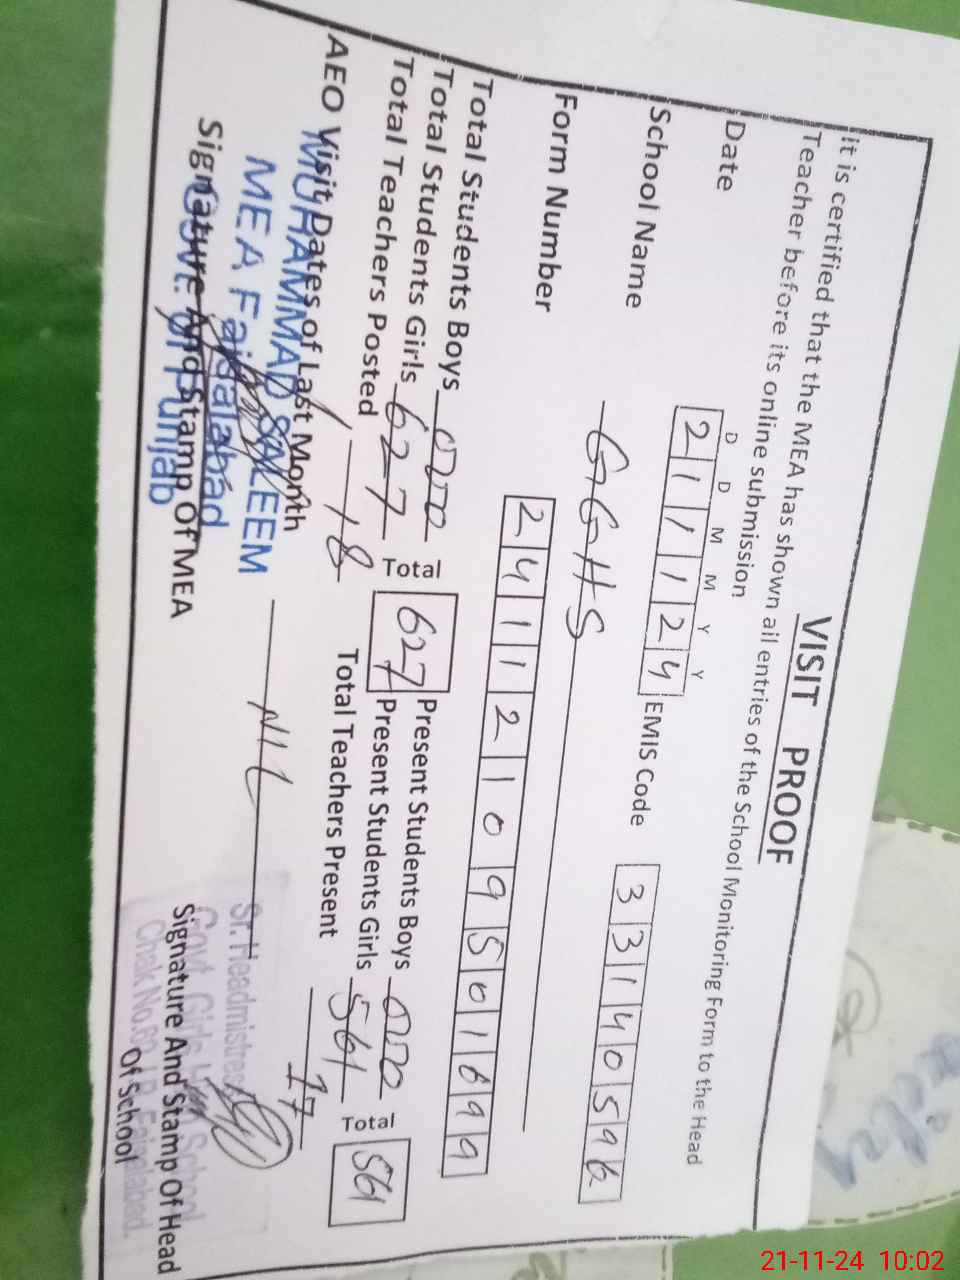 VISIT PROOF
It is certified that the MEA has shown all entries of the School Monitoring Form to the Head
Teacher before its online submission
D D M M Y Y
Date 2 1 1 1 2 4 EMIS Code 3 3 1 4 0 5 9 6
School Name GGHS
Form Number 2 4 1 1 2 1 0 9 5 0 1 6 9 9
Total Students Boys 000 Present Students Boys 000
Total Students Girls 627 Total 627 Present Students Girls 561 Total 561
Total Teachers Posted 18 Total Teachers Present 17
AEO Visit Dates of Last Month NIL
MUHAMMAD SALEEM
MEA Faisalabad
Govt. of Punjab
Signature And Stamp Of MEA
Sr. Headmistress
Govt. Girls High School
Chak No. Faisalabad.
Signature And Stamp Of Head
Of School
21-11-24 10:02